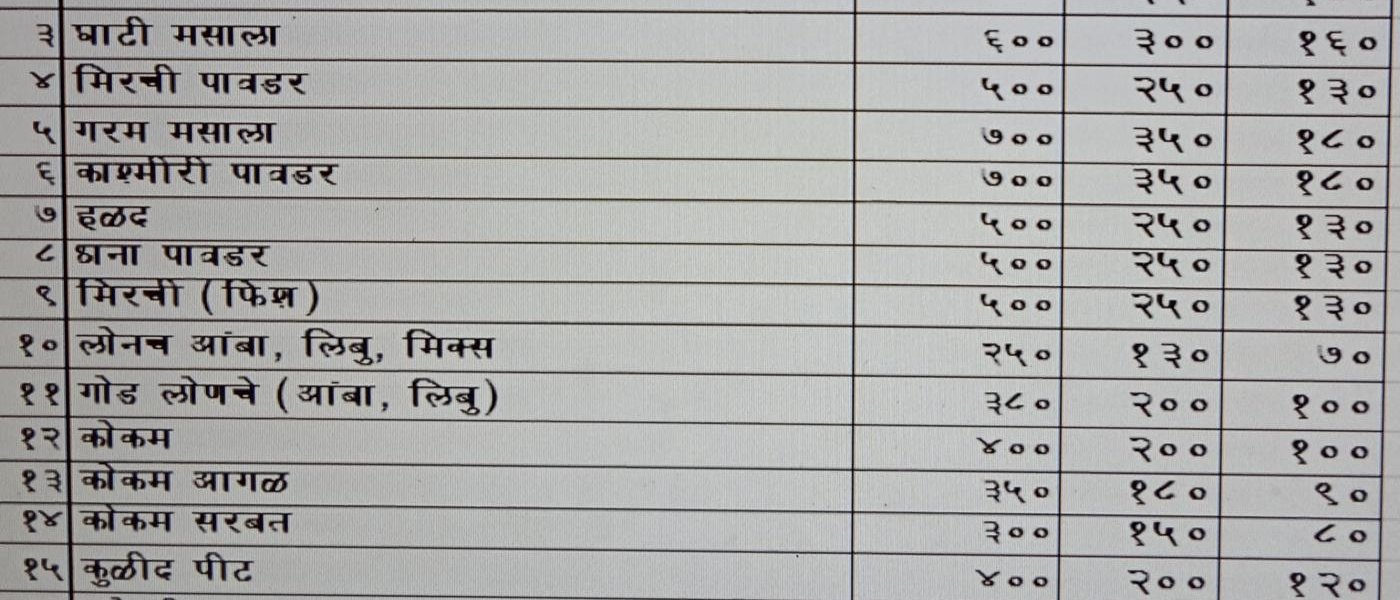 ३ घाटी मसाला ६०० ३०० १६०
४ मिरची पावडर ५०० २५० १३०
५ गरम मसाला ७०० ३५० १८०
६ काश्मीरी पावडर ७०० ३५० १८०
७ हळद ५०० २५० १३०
८ धाना पावडर ५०० २५० १३०
९ मिरची (फिश) ५०० २५० १३०
१० लोनच आंबा, लिबु, मिक्स २५० १३० ७०
११ गोड लोणचे (आंबा, लिबु) ३८० २०० १००
१२ कोकम ४०० २०० १००
१३ कोकम आगळ ३५० १८० ९०
१४ कोकम सरबत ३०० १५० ८०
१५ कुळीद पीट ४०० २०० १२०